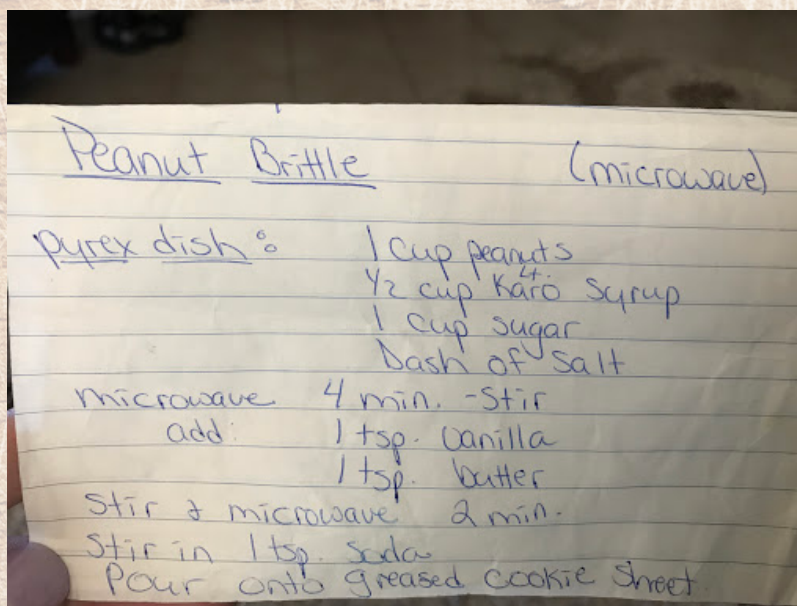 Peanut Brittle (microwave)
pyrex dish: 1 cup peanuts
Lt.
1/2 cup Karo Syrup
1 cup sugar
Dash of Salt
microwave 4 min. -Stir
add: 1 tsp. vanilla
1 tsp. butter
Stir & microwave 2 min.
Stir in 1 tsp. soda
Pour onto greased cookie sheet